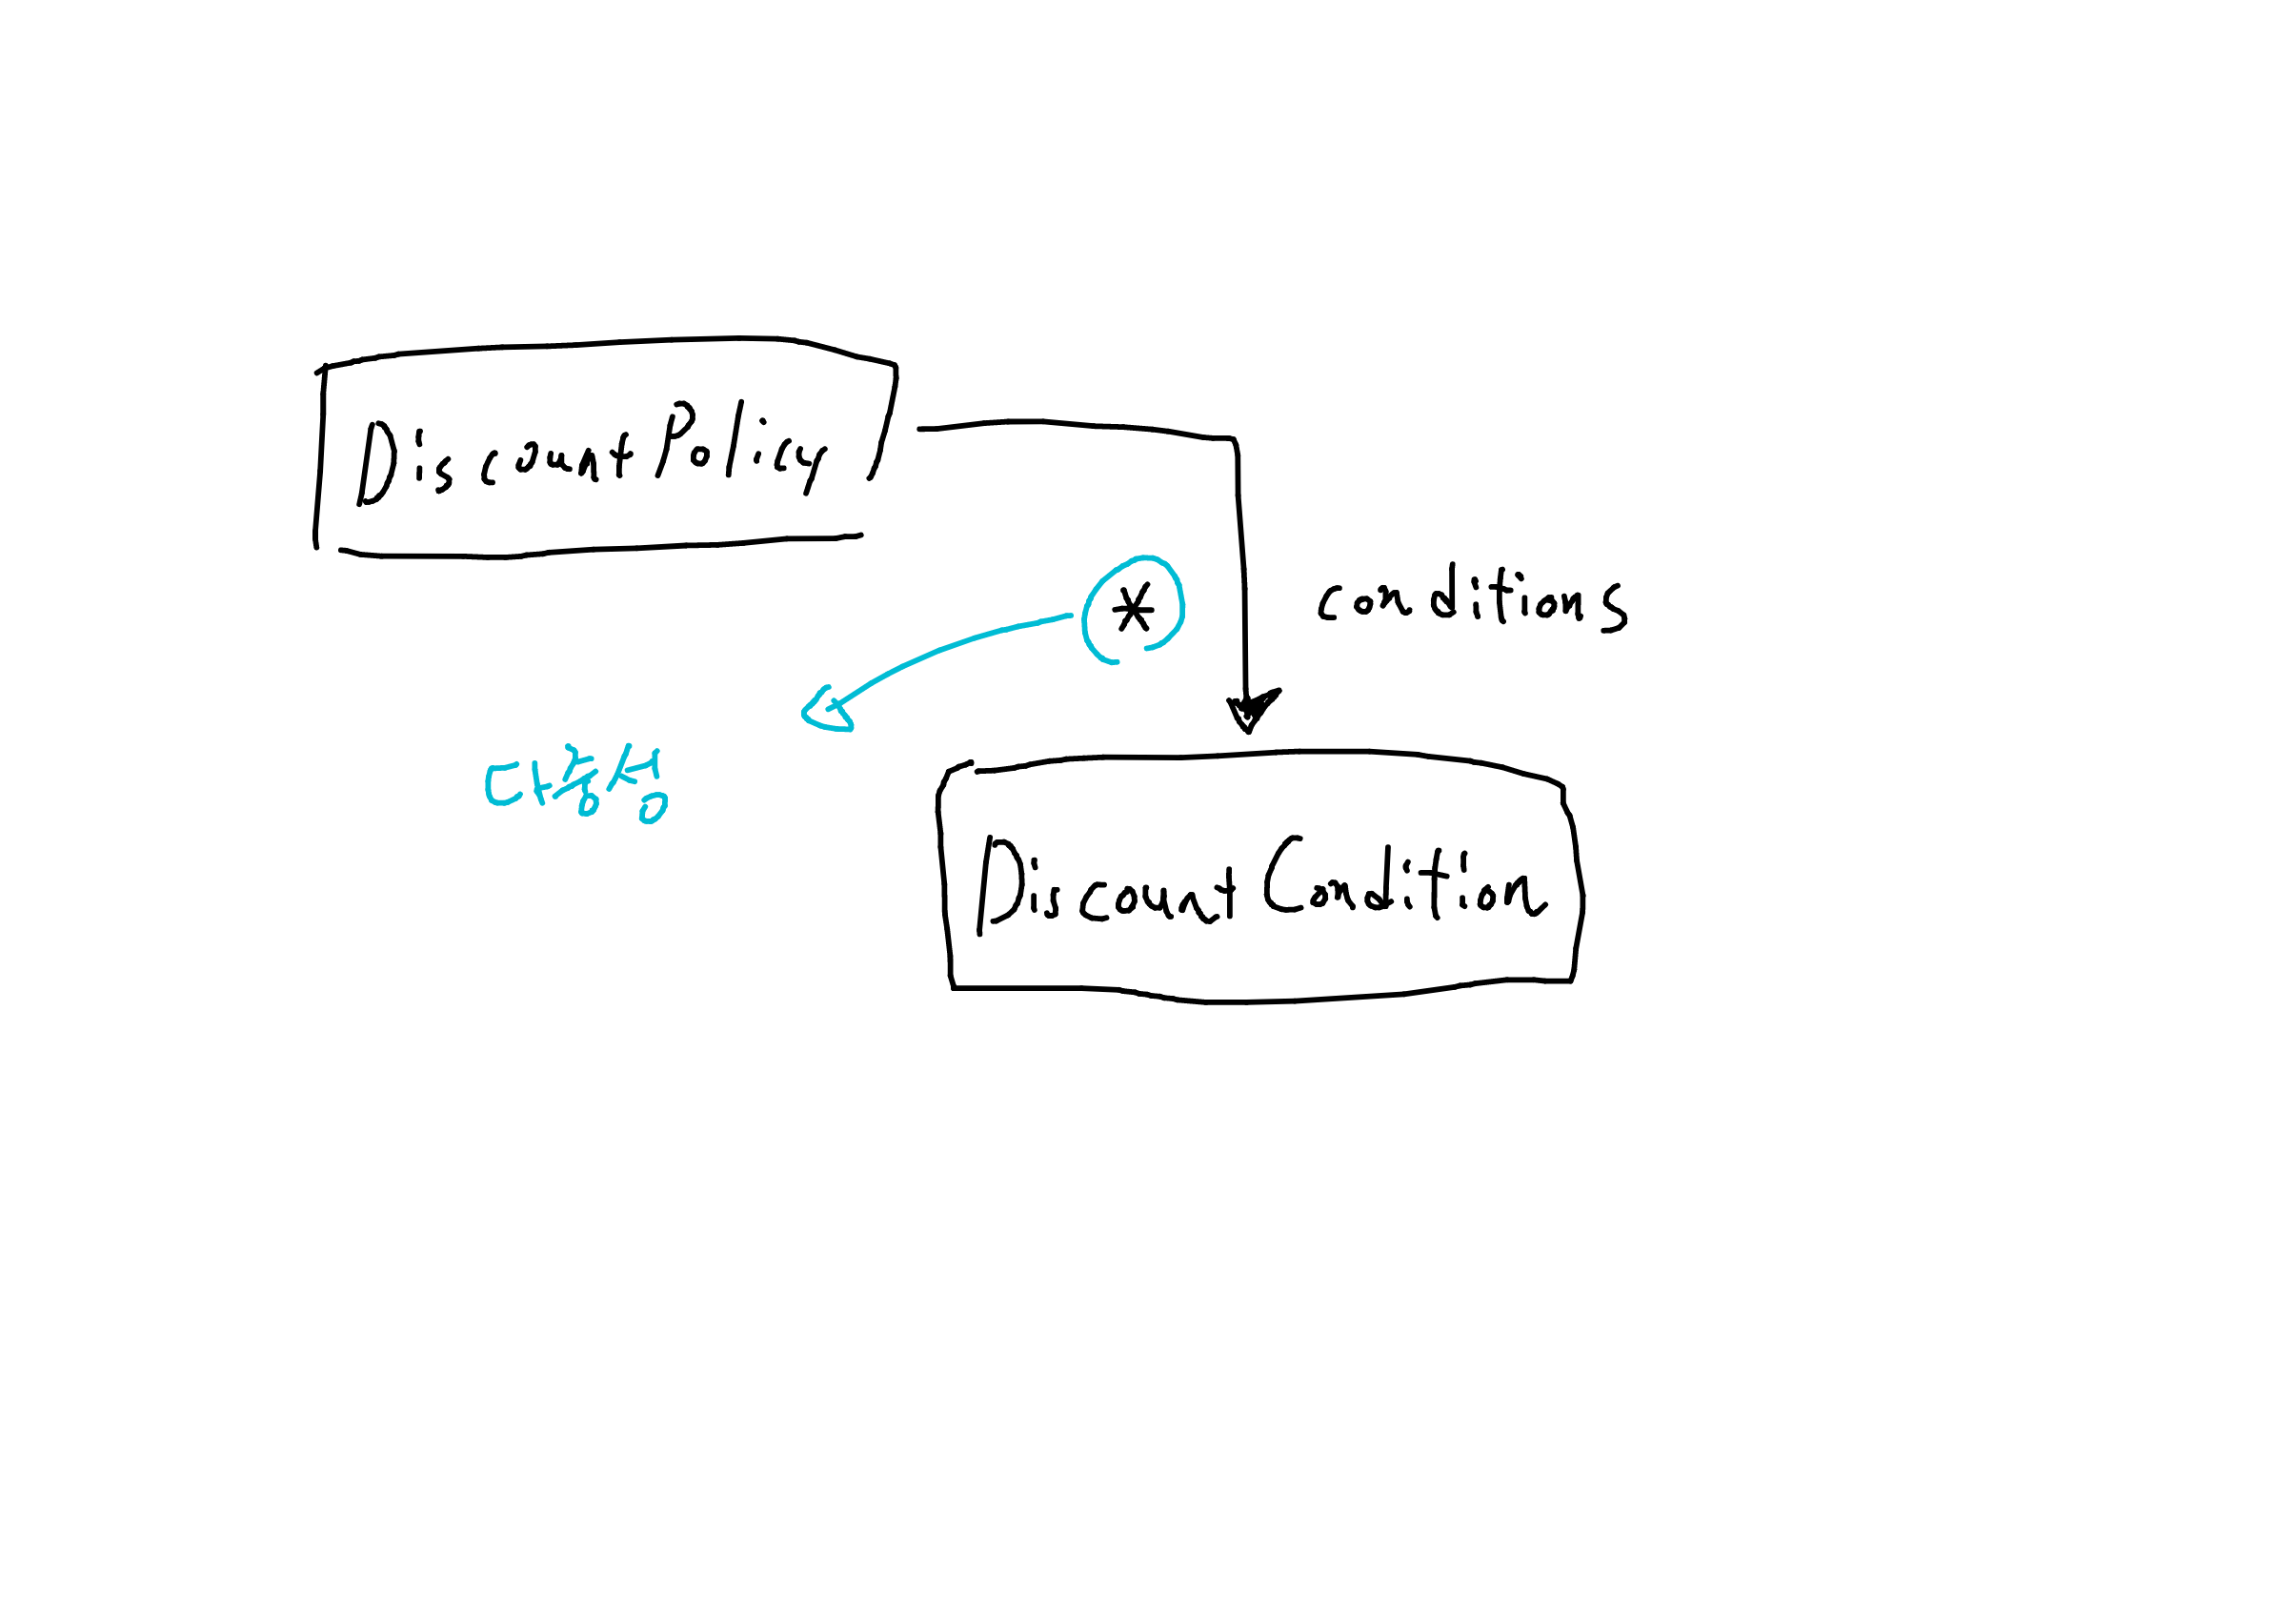 DiscountPolicy
* conditions
다중성
DiscountCondition